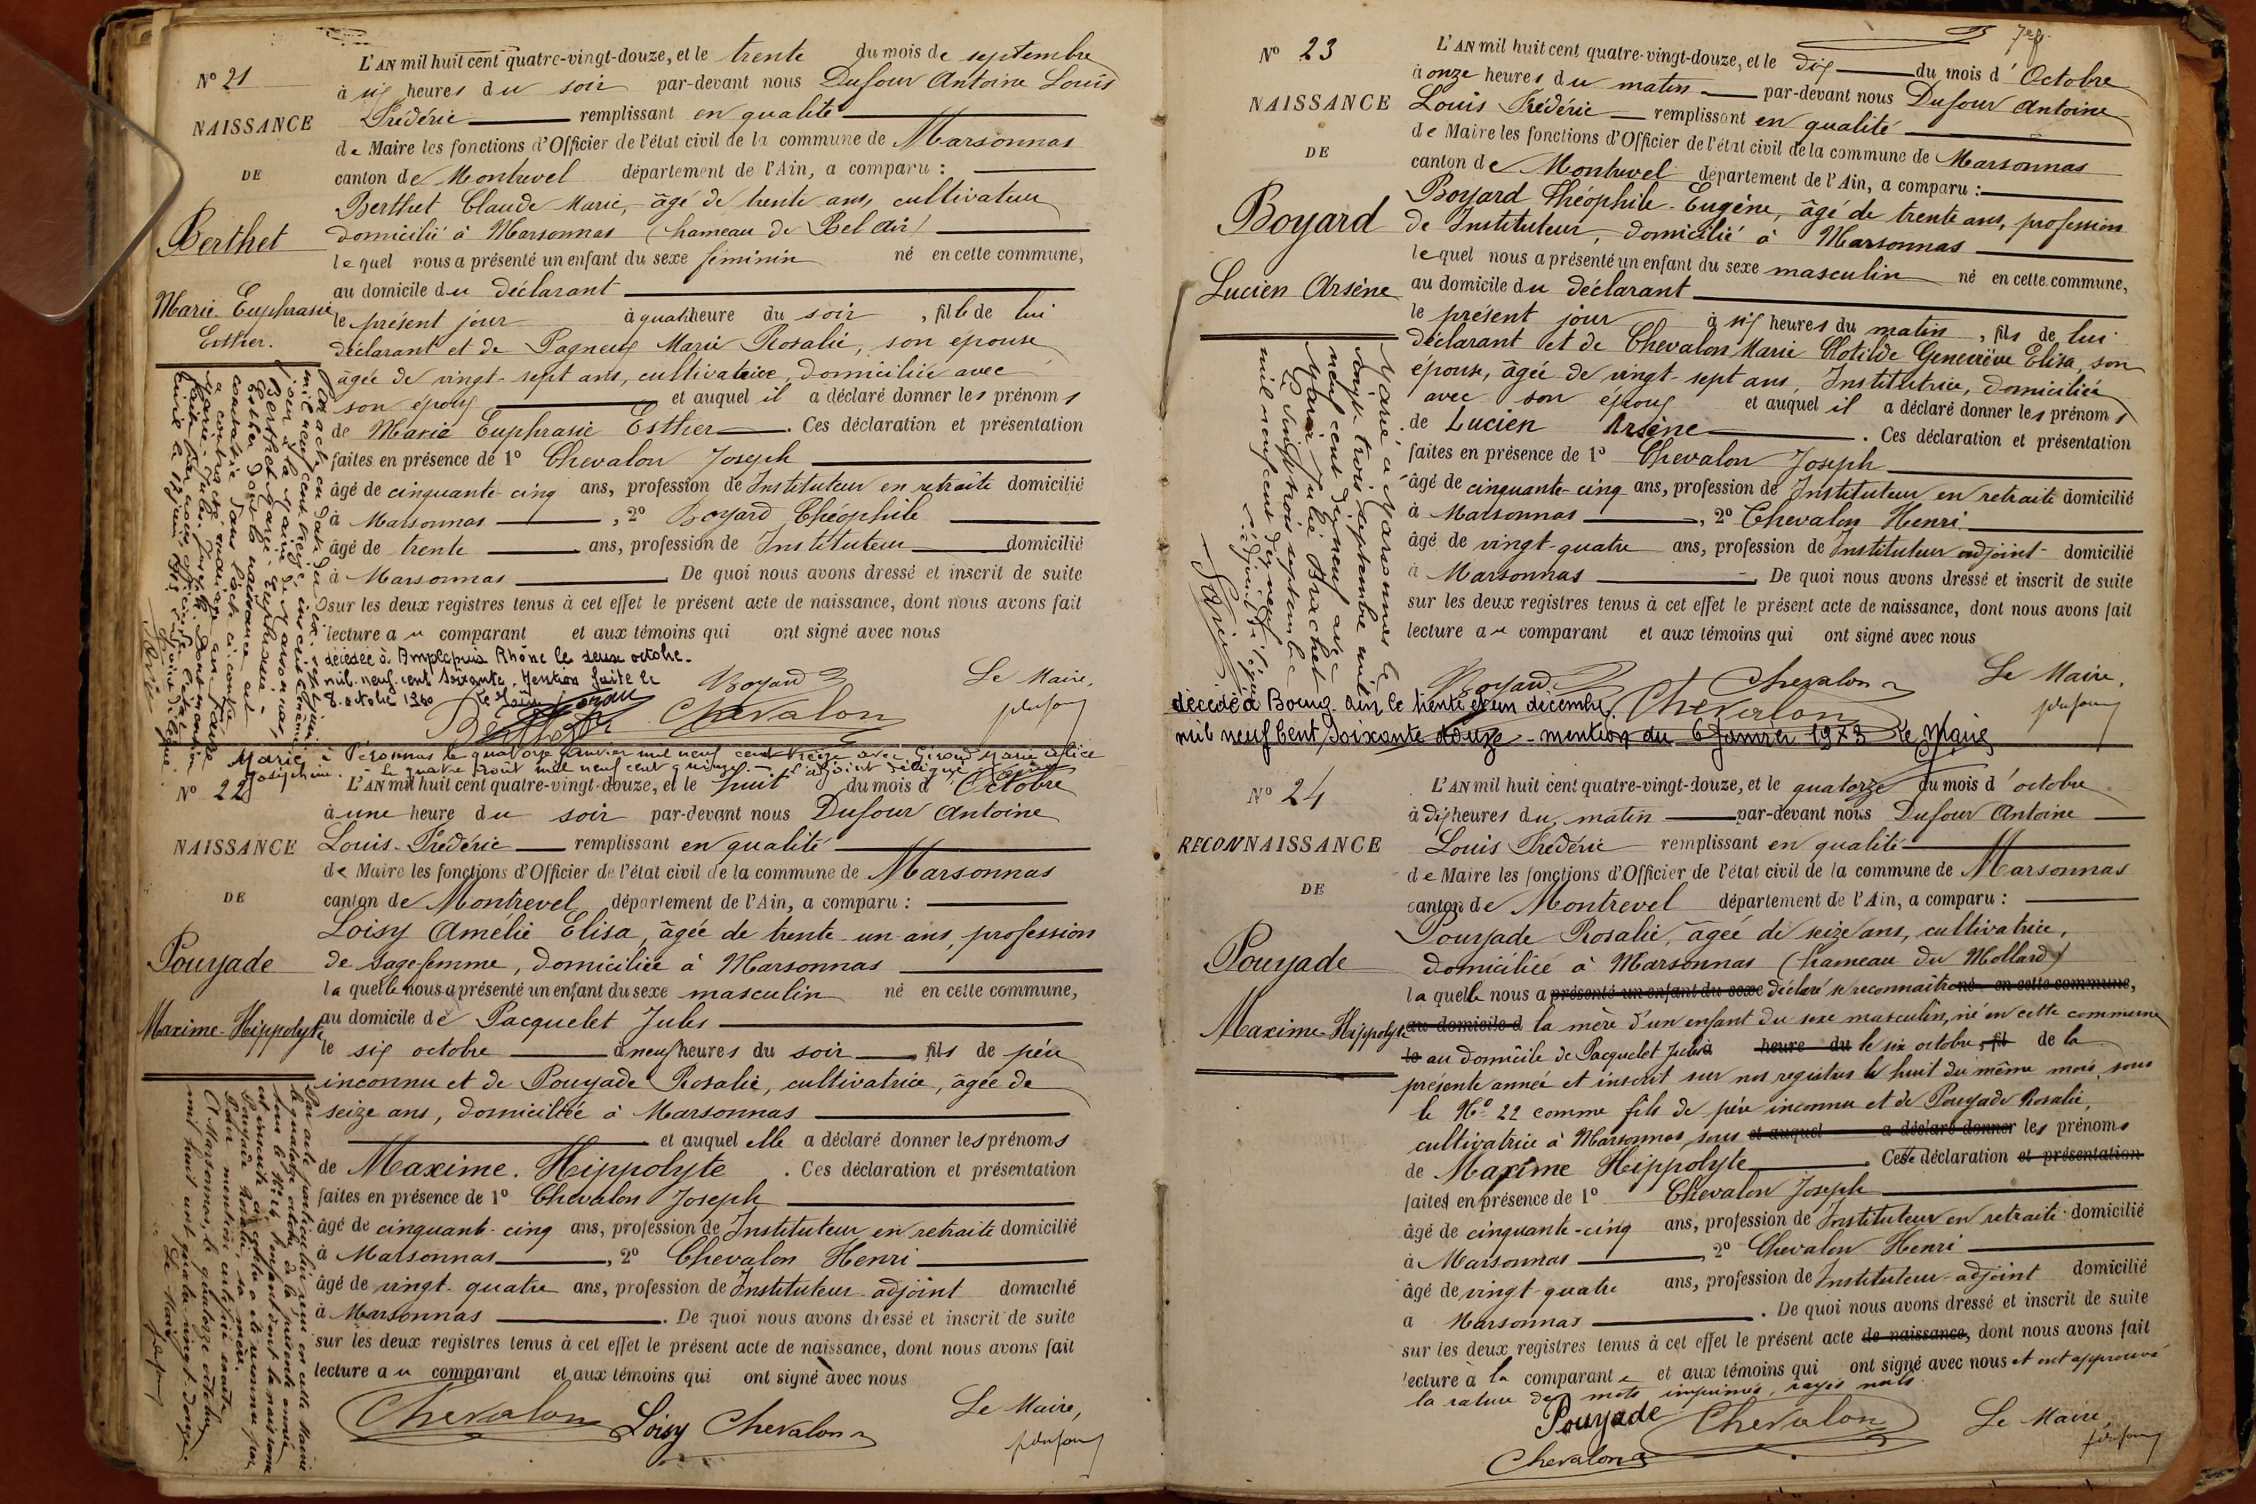 N° 21
NAISSANCE
DE
Berthet
Marie Euphrasie
Esther.
L'AN mil huit cent quatre-vingt-douze, et le trente du mois de septembre
à six heures du soir par-devant nous Dufour Antoine Louis
Frédéric remplissant en qualité
de Maire les fonctions d'Officier de l'état civil de la commune de Marsonnas
canton de Montrevel département de l'Ain, a comparu :
Berthet Claude Marie, âgé de trente ans, cultivateur
domicilié à Marsonnas (hameau de Bel Air)
lequel nous a présenté un enfant du sexe féminin né en cette commune,
au domicile du déclarant
le présent jour à quatre heure du soir, fille de lui
déclarant et de Pagneux Marie Rosalie, son épouse
âgée de vingt-sept ans, cultivatrice, domiciliée avec
son époux et auquel il a déclaré donner les prénoms
de Marie Euphrasie Esther. Ces déclaration et présentation
faites en présence de 1° Chevalon Joseph
âgé de cinquante-cinq ans, profession de Instituteur en retraite domicilié
à Marsonnas, 2° Boyard Théophile
âgé de trente ans, profession de Instituteur domicilié
à Marsonnas. De quoi nous avons dressé et inscrit de suite
sur les deux registres tenus à cet effet le présent acte de naissance, dont nous avons fait
lecture au comparant et aux témoins qui ont signé avec nous
décédée à Amplepuis Rhône le deux octobre
mil neuf cent soixante. Mention faite le
8 octobre 1960 Le Maire
Boyard Le Maire,
Berthet Chevalon
Marié à Péronnas le quatorze janvier mil neuf cent treize avec Giroud Marie
Joséphine. Le quatre août mil neuf cent quinze. L'adjoint délégué
N° 22
NAISSANCE
DE
Pouyade
Maxime-Hippolyte
L'AN mil huit cent quatre-vingt-douze, et le huit du mois d'Octobre
à une heure du soir par-devant nous Dufour Antoine
Louis-Frédéric remplissant en qualité
de Maire les fonctions d'Officier de l'état civil de la commune de Marsonnas
canton de Montrevel département de l'Ain, a comparu :
Loisy Amélie Elisa, âgée de trente-un ans, profession
de sage-femme, domiciliée à Marsonnas
laquelle nous a présenté un enfant du sexe masculin né en cette commune,
au domicile de Pacquelet Jules
le six octobre à neuf heures du soir, fils de père
inconnu et de Pouyade Rosalie, cultivatrice, âgée de
seize ans, domiciliée à Marsonnas
et auquel elle a déclaré donner les prénoms
de Maxime. Hippolyte. Ces déclaration et présentation
faites en présence de 1° Chevalon Joseph
âgé de cinquante-cinq ans, profession de Instituteur en retraite domicilié
à Marsonnas, 2° Chevalon Henri
âgé de vingt-quatre ans, profession de Instituteur-adjoint domicilié
à Marsonnas. De quoi nous avons dressé et inscrit de suite
sur les deux registres tenus à cet effet le présent acte de naissance, dont nous avons fait
lecture au comparant et aux témoins qui ont signé avec nous
Chevalon Loisy Chevalon Le Maire,
Par acte particulier reçu en cette Mairie
le quatorze octobre de la présente année
sous le N° 24, l'enfant dont la naissance
est énoncée ci-contre a été reconnu par
Pouyade Rosalie, sa mère.
Pour mention certifiée exacte,
A Marsonnas, le quatorze octobre
mil huit cent quatre-vingt-douze.
Le Maire
N° 23
NAISSANCE
DE
Boyard
Lucien Arsène
L'AN mil huit cent quatre-vingt-douze, et le dix du mois d'Octobre
à onze heures du matin par-devant nous Dufour Antoine
Louis Frédéric remplissant en qualité
de Maire les fonctions d'Officier de l'état civil de la commune de Marsonnas
canton de Montrevel département de l'Ain, a comparu :
Boyard Théophile-Eugène, âgé de trente ans, profession
de Instituteur, domicilié à Marsonnas
lequel nous a présenté un enfant du sexe masculin né en cette commune,
au domicile du déclarant
le présent jour à six heures du matin, fils de lui
déclarant et de Chevalon Marie Clotilde Geneviève Elisa, son
épouse, âgée de vingt-sept ans, Institutrice, domiciliée
avec son époux et auquel il a déclaré donner les prénoms
de Lucien Arsène. Ces déclaration et présentation
faites en présence de 1° Chevalon Joseph
âgé de cinquante-cinq ans, profession de Instituteur en retraite domicilié
à Marsonnas, 2° Chevalon Henri
âgé de vingt-quatre ans, profession de Instituteur adjoint domicilié
à Marsonnas. De quoi nous avons dressé et inscrit de suite
sur les deux registres tenus à cet effet le présent acte de naissance, dont nous avons fait
lecture au comparant et aux témoins qui ont signé avec nous
Marié à Marsonnas le
vingt trois septembre mil
neuf cent dix neuf avec
Marie Julie Brachet
Le vingt trois septembre
mil neuf cent dix neuf
L'adjoint délégué
Boyard Chevalon Le Maire,
Chevalon
décédé à Bourg Ain le trente et un décembre
mil neuf cent soixante douze - mention du 6 Janvier 1973 Le Maire
N° 24
RECONNAISSANCE
DE
Pouyade
Maxime-Hippolyte
L'AN mil huit cent quatre-vingt-douze, et le quatorze du mois d'octobre
à dix heures du matin par-devant nous Dufour Antoine
Louis Frédéric remplissant en qualité
de Maire les fonctions d'Officier de l'état civil de la commune de Marsonnas
canton de Montrevel département de l'Ain, a comparu :
Pouyade Rosalie, âgée de seize ans, cultivatrice,
domiciliée à Marsonnas (hameau du Mollard)
laquelle nous a présenté un enfant du sexe déclaré se reconnaître né en cette commune,
au domicile d la mère d'un enfant du sexe masculin, né en cette commune
le au domicile de Pacquelet Jules à heure du le six octobre, fil de la
présente année et inscrit sur nos registres le huit du même mois, sous
le N° 22 comme fils de père inconnu et de Pouyade Rosalie,
cultivatrice à Marsonnas, sous et auquel a déclaré donner les prénoms
de Maxime Hippolyte. Cette déclaration et présentation
faites en présence de 1° Chevalon Joseph
âgé de cinquante-cinq ans, profession de Instituteur en retraite domicilié
à Marsonnas, 2° Chevalon Henri
âgé de vingt-quatre ans, profession de Instituteur-adjoint domicilié
à Marsonnas. De quoi nous avons dressé et inscrit de suite
sur les deux registres tenus à cet effet le présent acte de naissance, dont nous avons fait
lecture à la comparante et aux témoins qui ont signé avec nous et ont approuvé
la rature des mots imprimés, rayés nuls.
Pouyade Chevalon Le Maire
Chevalon